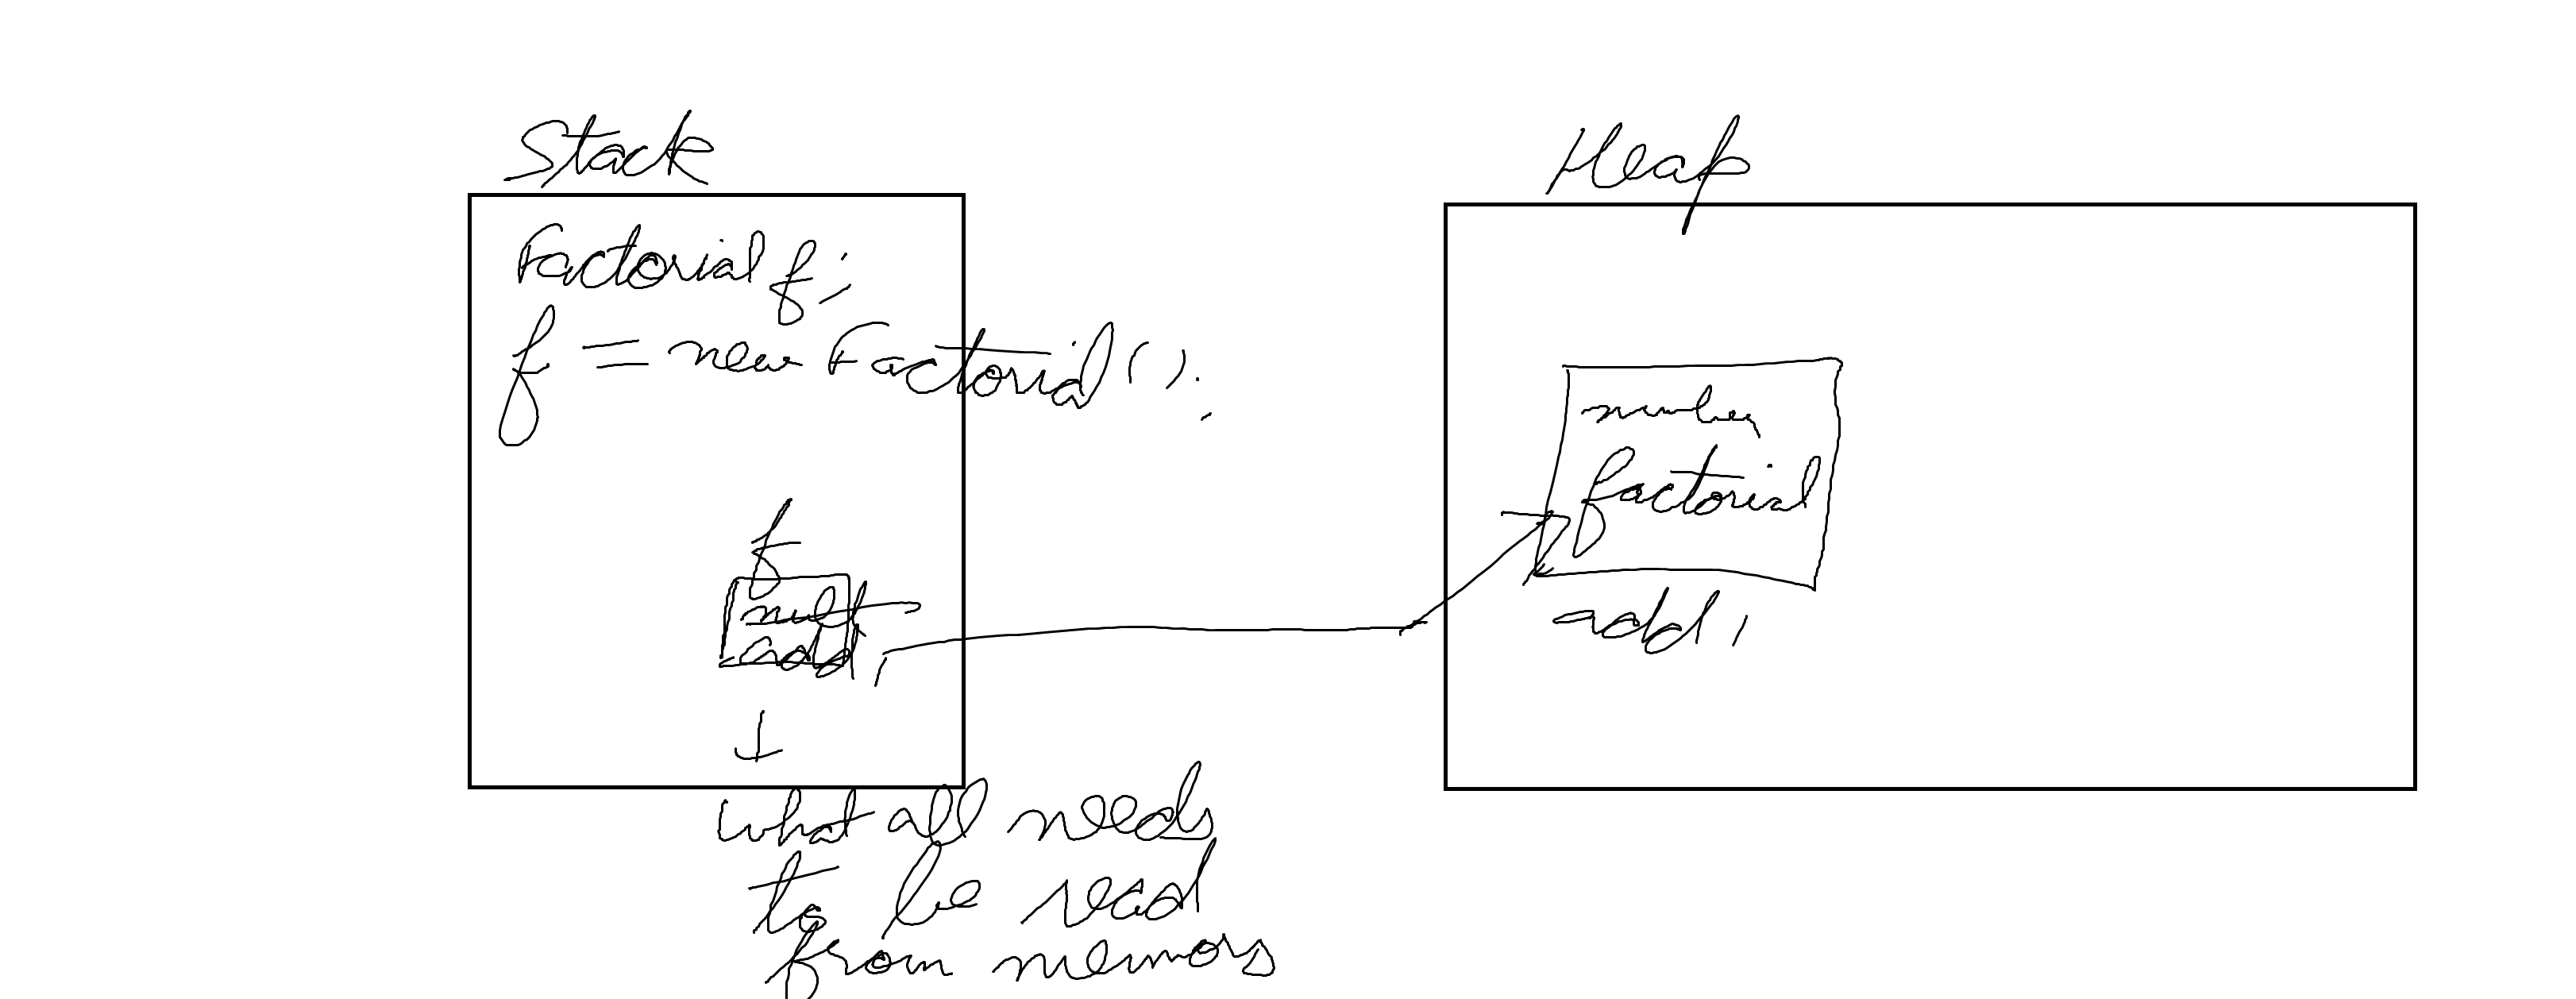 Stack
Factorial f;
f = new Factorial();
f
null
addr
what all needs
to be read
from memory
Heap
number
factorial
addr